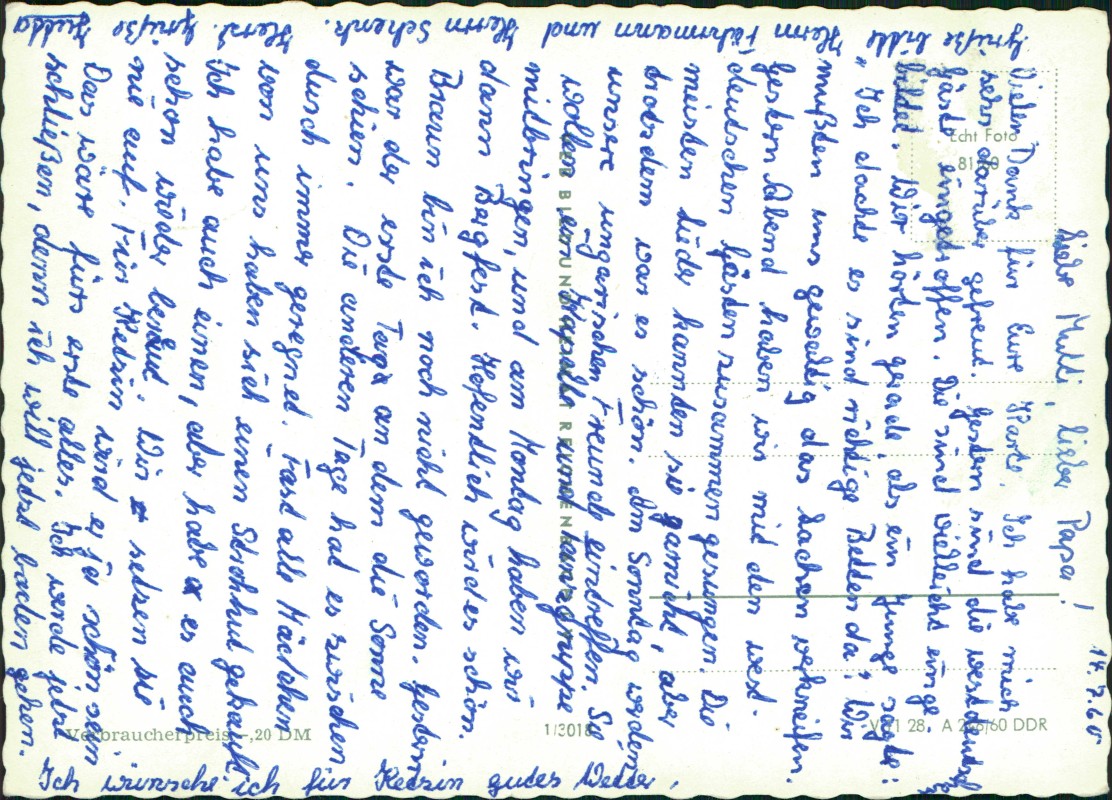 14.7.60
Liebe Mutti, lieber Papa!
Vielen Dank für Eure Karte. Ich habe mich
sehr darüber gefreut. Gestern sind die westdeutsch
Gäste eingetroffen. Die sind vielleicht einge-
bildet. Wir hörten gerade, als ein Junge sagte:
„Ich dachte es sind richtige Betten da". Wir
mußten uns gewaltig das Lachen verkneifen.
Gestern Abend haben wir mit den west-
deutschen Gästen zusammen gesungen. Die
meisten Lieder kannten sie garnicht, aber
trotzdem war es schön. Am Sonntag werden
unsere ungarischen Freunde eintreffen. Sie
wollen eine Kapelle und Tanzgruppe
mitbringen, und am Montag haben wir
dann Bergfest. Hofendlich wird es schön.
Braun bin ich noch nicht geworden. Gestern
war der erste Tag an dem die Sonne
schien. Die anderen Tage hat es zwischen
durch immer geregnet. Fast alle Mädchen
von uns haben sich einen Strohhut gekauft
Ich habe auch einen, aber habe es auch
schon wieder bereut. Wir setzen sie
nie auf. Für Ketzin wird er ja schön sein
Das wäre fürs erste alles. Ich werde jetzt
schließen, denn ich will jetzt baden gehen.
Ich wünsche ich für Ketzin gutes Wetter.
Grüße bitte Herrn Fährmann und Herrn Schenk. Herzl. Grüße Jutta
Echt Foto
DER BILD UND HEIMAT REICHENBACH
Verbraucherpreis -,20 DM
1/3018
V 11 28 A 276/60 DDR